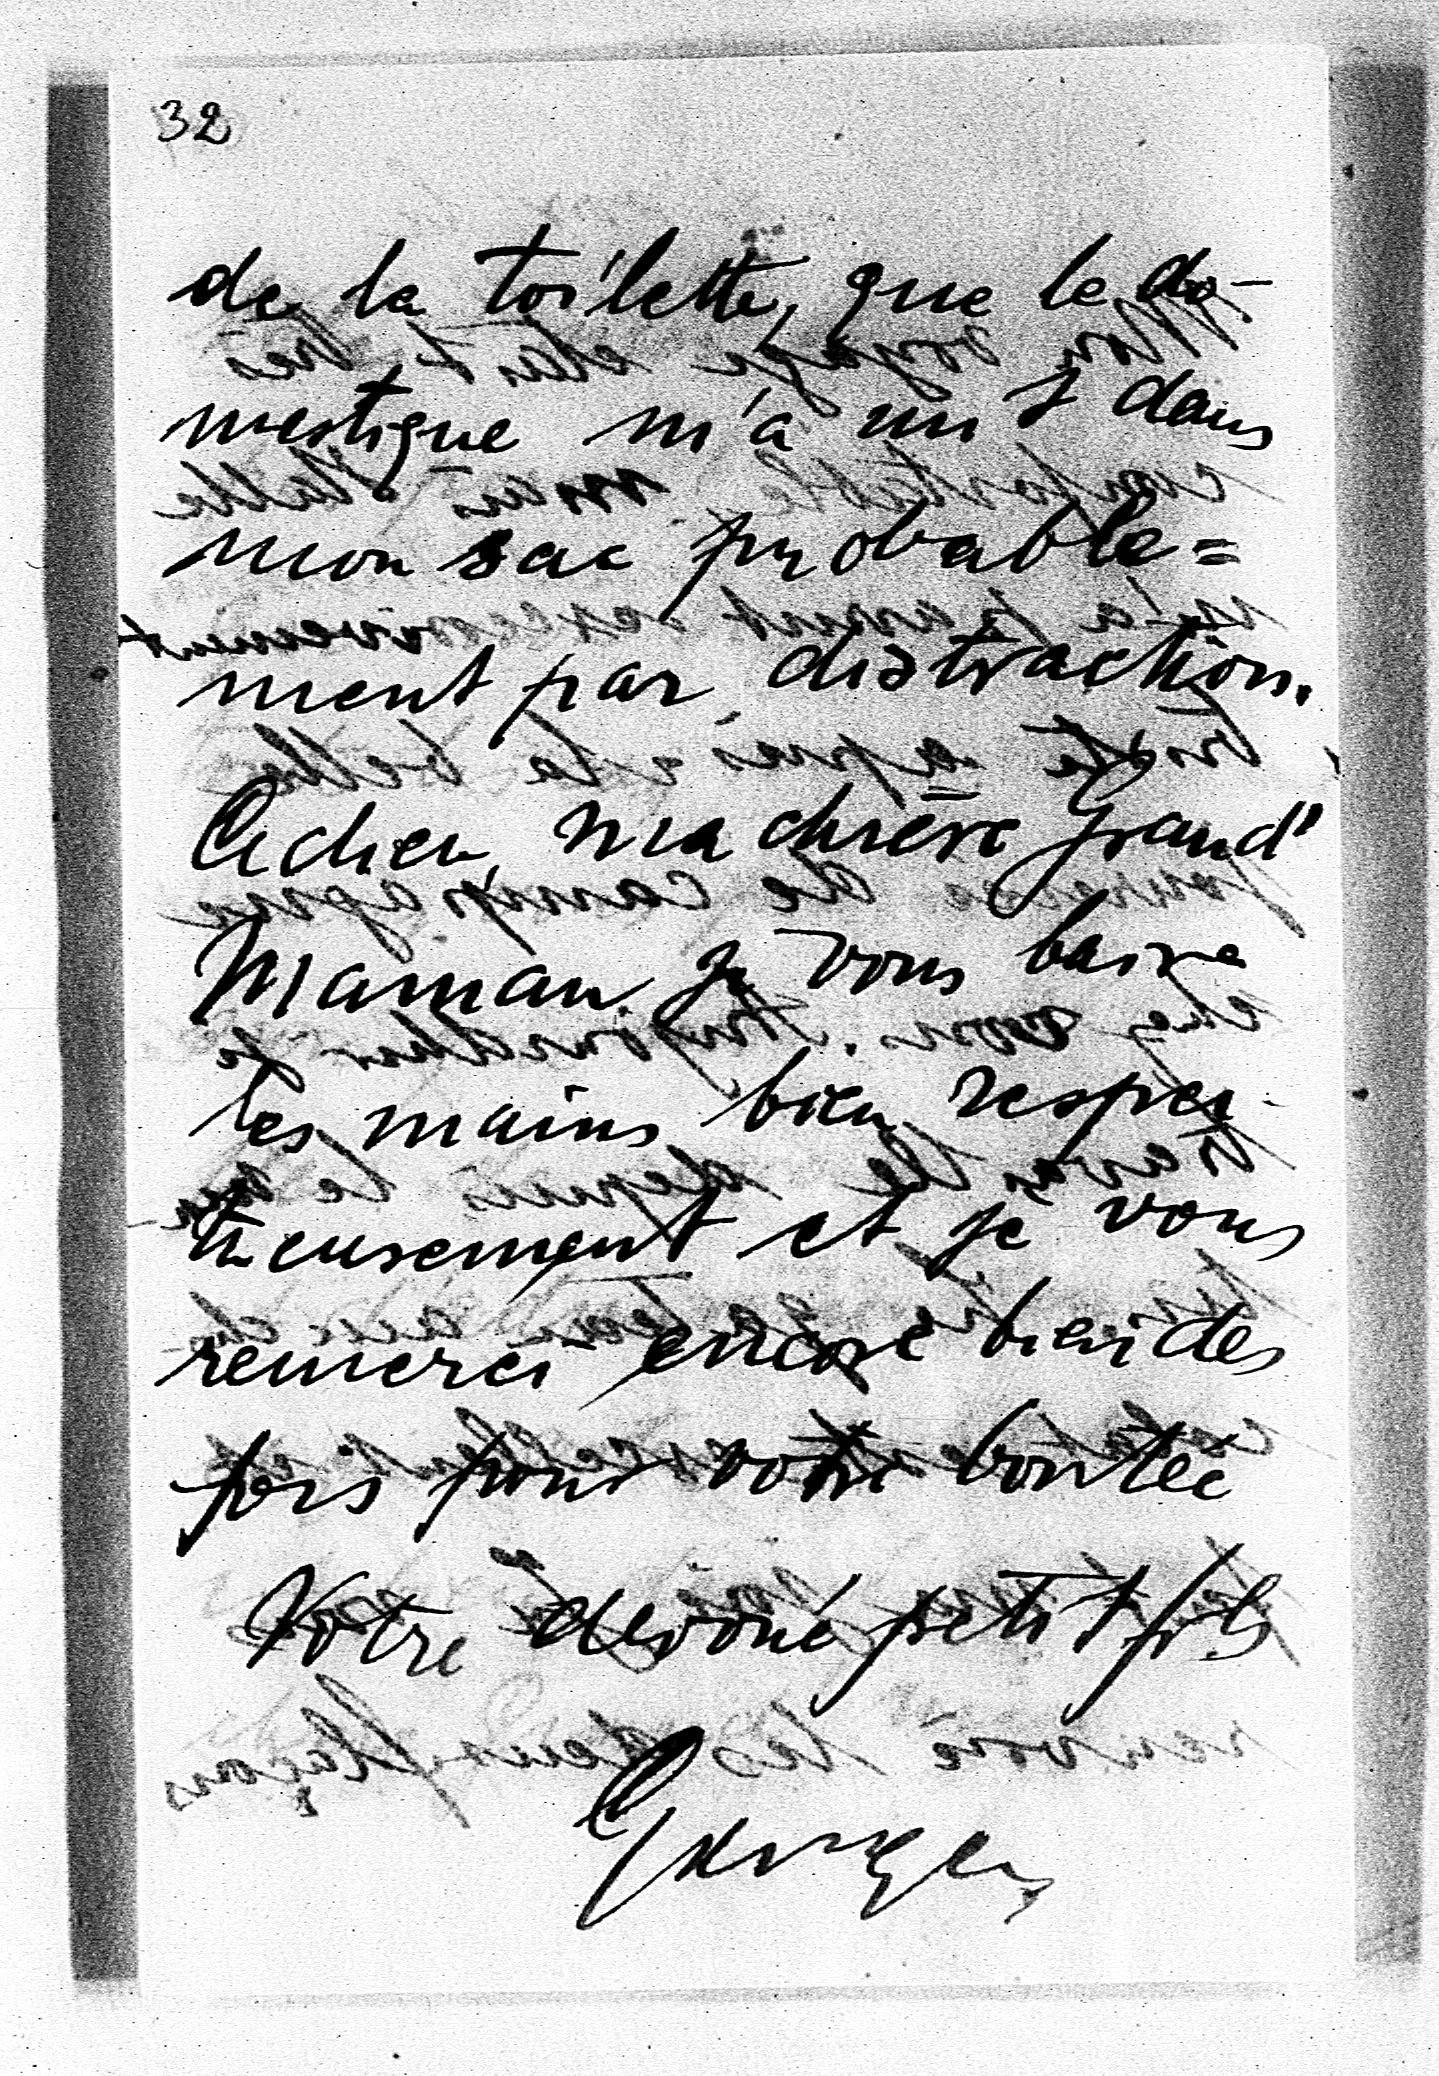 32
de la toilette, que le do-
mestique m'a mis dans
mon sac probable=
ment par distraction.
Adieu, ma chrère Grand'
Maman. Je vous baise
les mains bien respec-
tueusement et je vous
remerci encore bien des
fois pour votre bontée
Votre dévoué petit fils
Georges